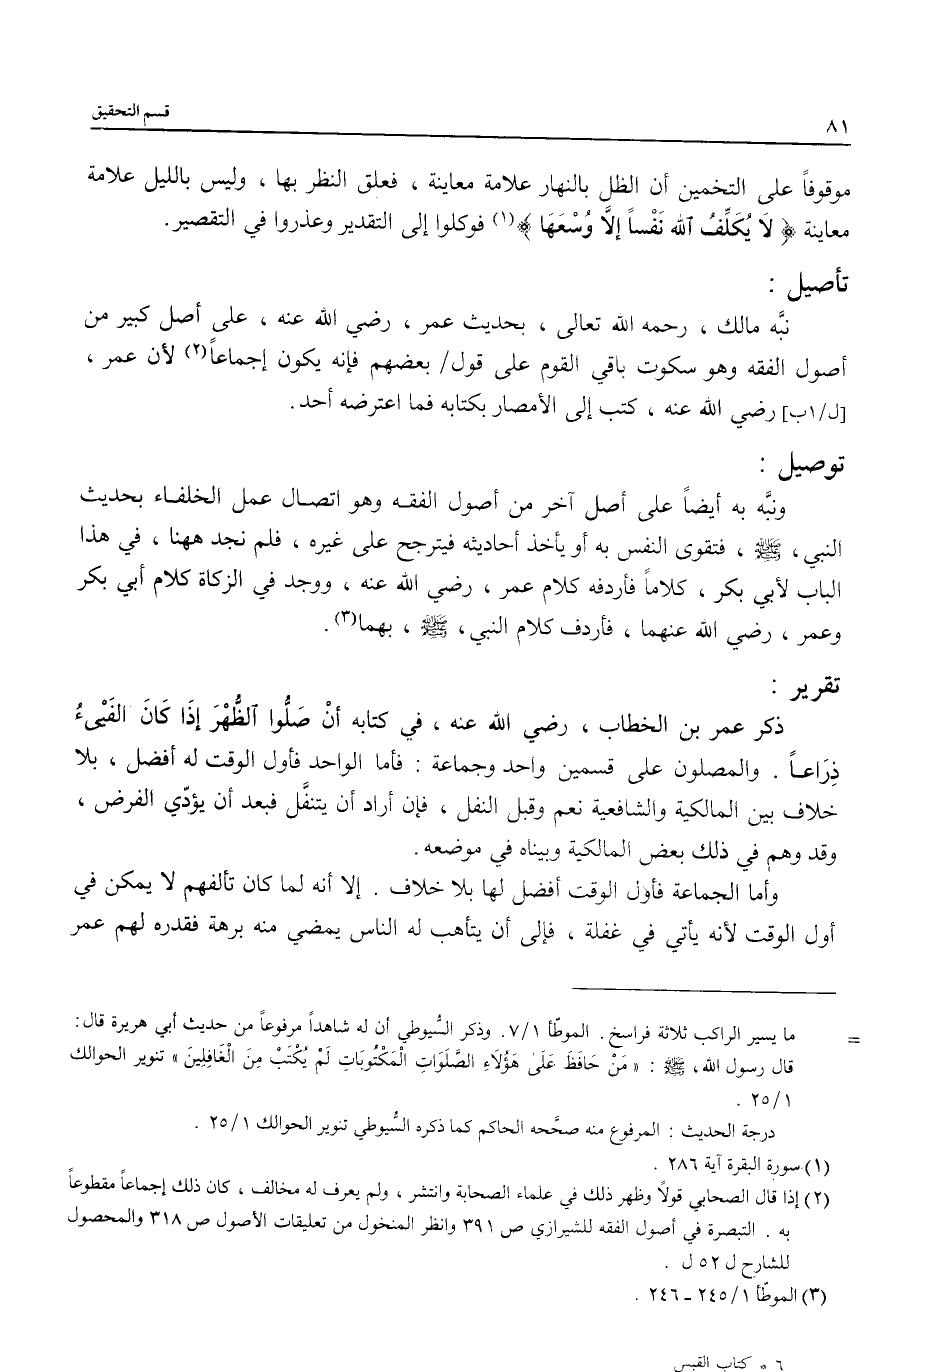 قسم التحقيق
٨١
موقوفاً على التخمين أن الظل بالنهار علامة معاينة ، فعلق النظر بها ، وليس بالليل علامة
معاينة ﴿ لَا يُكَلِّفُ ٱللَه نَفْساً إلَّا وُسْعَهَا ﴾(١) فوكلوا إلى التقدير وعذروا في التقصير.
تأصيل :
نبَّه مالك ، رحمه الله تعالى ، بحديث عمر ، رضي الله عنه ، على أصل كبير من
أصول الفقه وهو سكوت باقي القوم على قول/ بعضهم فإنه يكون إجماعاً(٢) لأن عمر ،
[ل/١ب] رضي الله عنه ، كتب إلى الأمصار بكتابه فما اعترضه أحد.
توصيل :
ونبَّه به أيضاً على أصل آخر من أصول الفقه وهو اتصال عمل الخلفاء بحديث
النبي، ﷺ ، فتقوى النفس به أو يأخذ أحاديثه فيترجح على غيره ، فلم نجد ههنا ، في هذا
الباب لأبي بكر ، كلاماً فأردفه كلام عمر ، رضي الله عنه ، ووجد في الزكاة كلام أبي بكر
وعمر ، رضي الله عنهما ، فأردف كلام النبي، ﷺ ، بهما(٣).
تقرير :
ذكر عمر بن الخطاب ، رضي الله عنه ، في كتابه أنْ صَلُّوا ٱلظُّهْرَ إذَا كَانَ الفَيْىءُ
ذِرَاعاً . والمصلون على قسمين واحد وجماعة : فأما الواحد فأول الوقت له أفضل ، بلا
خلاف بين المالكية والشافعية نعم وقبل النفل ، فإن أراد أن يتنفَّل فبعد أن يؤدّي الفرض ،
وقد وهم في ذلك بعض المالكية وبيناه في موضعه.
وأما الجماعة فأول الوقت أفضل لها بلا خلاف . إلا أنه لما كان تألفهم لا يمكن في
أول الوقت لأنه يأتي في غفلة ، فإلى أن يتأهب له الناس يمضي منه برهة فقدره لهم عمر
= ما يسير الراكب ثلاثة فراسخ. الموطّأ ٧/١. وذكر السُّيوطي أن له شاهداً مرفوعاً من حديث أبي هريرة قال:
قال رسول الله، ﷺ : «مَنْ حَافَظَ عَلَى هَؤُلَاءِ الصَّلَوَاتِ الْمَكْتُوبَاتِ لَمْ يُكْتَبْ مِنَ الْغَافِلِينَ» تنوير الحوالك
٢٥/١ .
درجة الحديث : المرفوع منه صحَّحه الحاكم كما ذكره السُّيوطي تنوير الحوالك ٢٥/١ .
(١) سورة البقرة آية ٢٨٦ .
(٢) إذا قال الصحابي قولاً وظهر ذلك في علماء الصحابة وانتشر ، ولم يعرف له مخالف ، كان ذلك إجماعاً مقطوعاً
به . التبصرة في أصول الفقه للشيرازي ص ٣٩١ وانظر المنخول من تعليقات الأصول ص ٣١٨ والمحصول
للشارح ل ٥٢ ل .
(٣) الموطّأ ٢٤٥/١ ــ ٢٤٦ .
٦ * كتاب القبس